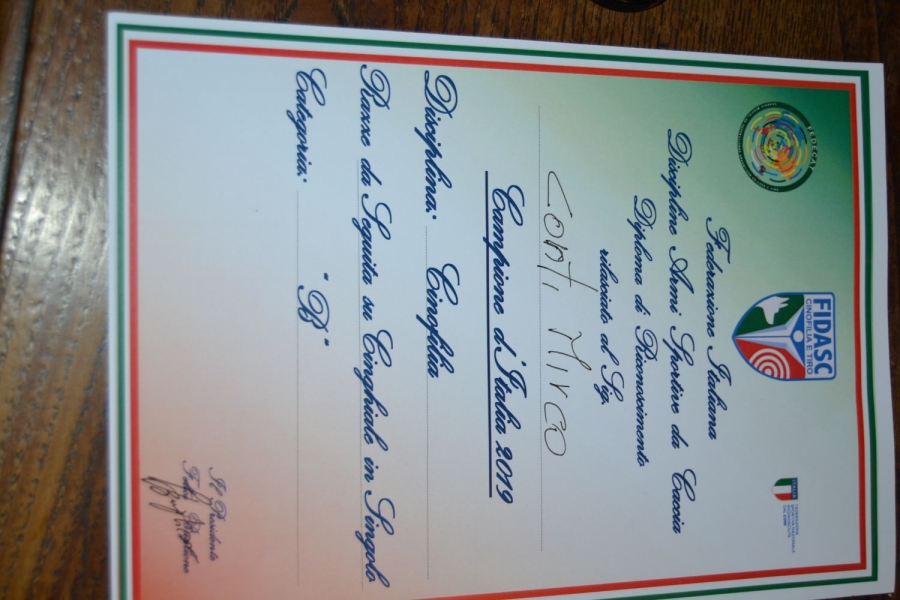 FIDASC
CINOFILIA E TIRO
Federazione Italiana
Discipline Armi Sportive da Caccia
Diploma di Riconoscimento
rilasciato al Sig.
CONTI MIRCO
Campione d'Italia 2019
Disciplina: Cinofilia
Razze da Seguita su Cinghiale in Singolo
Categoria: "B"
Il Presidente
Felice Buglione